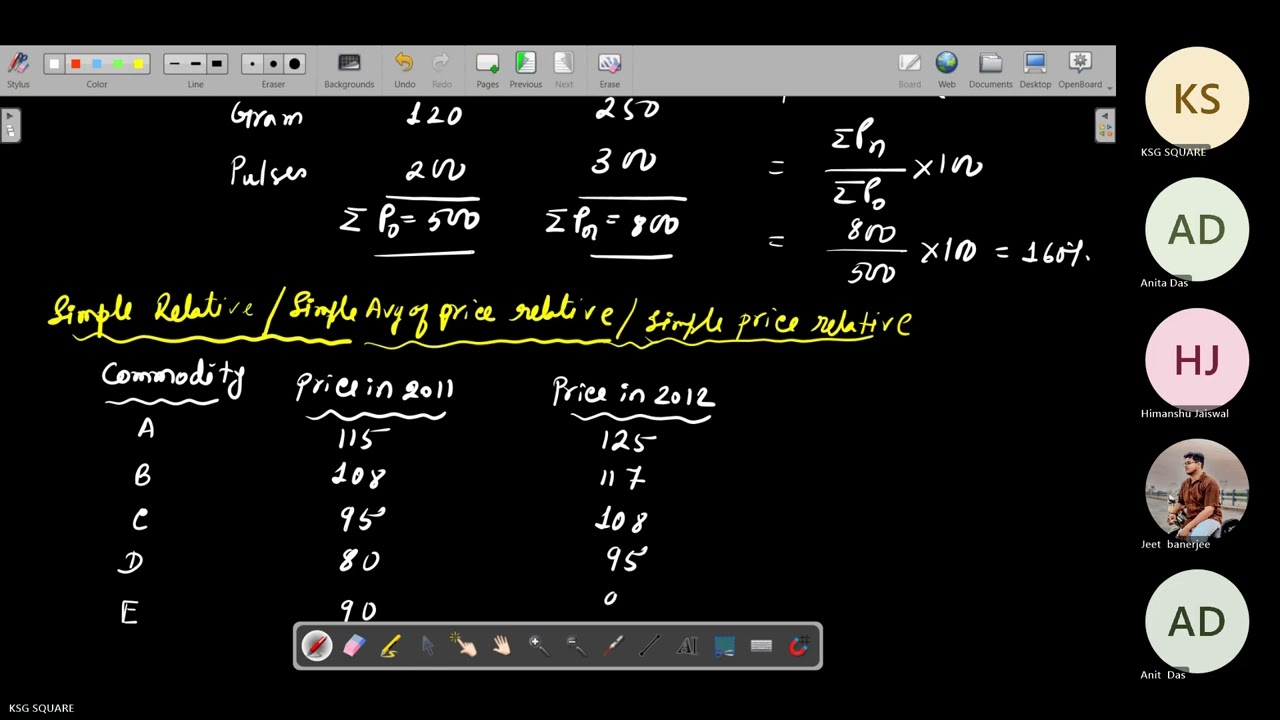 Stylus Color Line Eraser Backgrounds Undo Redo Pages Previous Next Erase Board Web Documents Desktop OpenBoard
Gram 120 250
Pulses 200 300 = ΣPn / ΣP0 ×100
ΣP0 = 500 ΣPn = 800 = 800 / 500 ×100 = 160%.
Simple Relative / Simple Avg of price relative / simple price relative
Commodity Price in 2011 Price in 2012
A 115 125
B 108 117
C 95 108
D 80 95
E 90
KS
KSG SQUARE
AD
Anita Das
HJ
Himanshu Jaiswal
Jeet banerjee
AD
Anit Das
KSG SQUARE